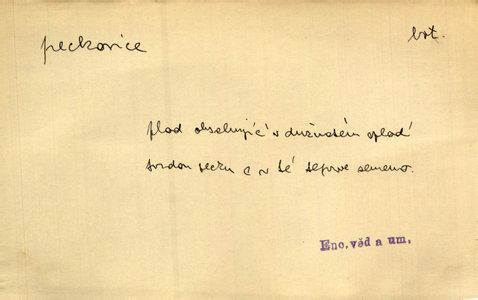 peckovice bot.
plod obsahující v dužnatém oplodí
tvrdou pecku a v té teprve semeno.
Enc. věd a um.